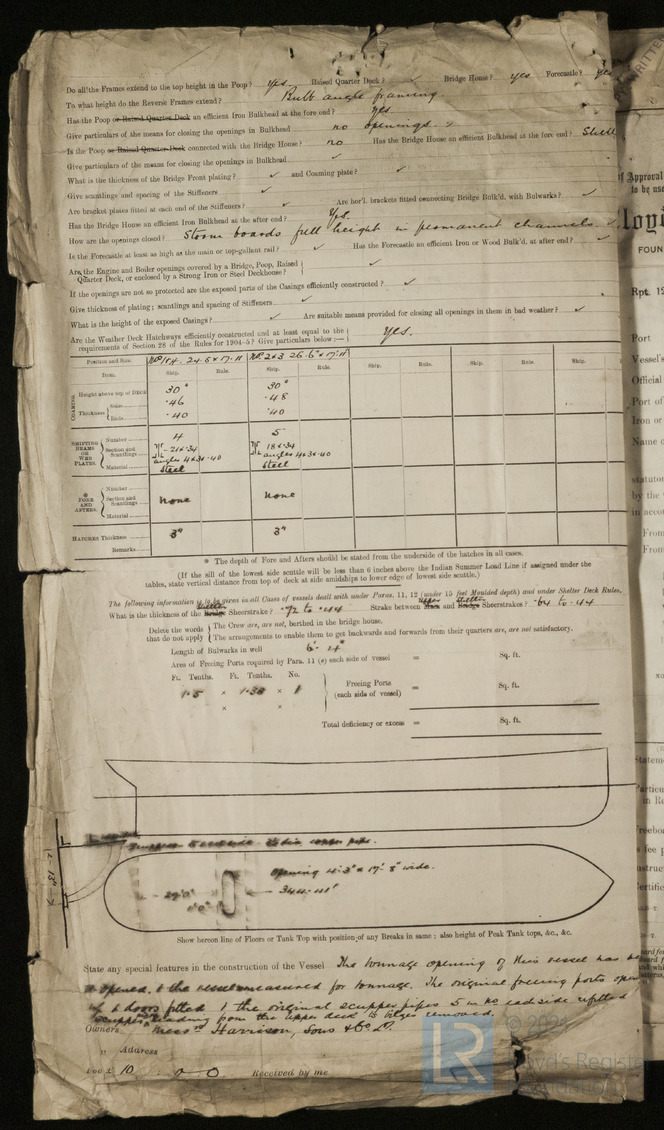 Do all the Frames extend to the top height in the Poop? yes Raised Quarter Deck? ✓ Bridge House? yes Forecastle? yes
To what height do the Reverse Frames extend? Bulb angle framing
Has the Poop or Raised Quarter Deck an efficient Iron Bulkhead at the fore end? yes
Give particulars of the means for closing the openings in Bulkhead no openings
Is the Poop or Raised Quarter Deck connected with the Bridge House? no Has the Bridge House an efficient Bulkhead at the fore end? Shell
Give particulars of the means for closing the openings in Bulkhead ✓
What is the thickness of the Bridge Front plating? ✓ and Coaming plate? ✓
Give scantlings and spacing of the Stiffeners ✓
Are bracket plates fitted at each end of the Stiffeners? ✓ Are hor'l. brackets fitted connecting Bridge Bulk'd. with Bulwarks? ✓
Has the Bridge House an efficient Iron Bulkhead at the after end? Yes.
How are the openings closed? Storm boards full height in permanent channels.
Is the Forecastle at least as high as the main or top-gallant rail? ✓ Has the Forecastle an efficient Iron or Wood Bulk'd. at after end? ✓
Are the Engine and Boiler openings covered by a Bridge, Poop, Raised
Quarter Deck, or enclosed by a Strong Iron or Steel Deckhouse? ✓
If the openings are not so protected are the exposed parts of the Casings efficiently constructed? ✓
Give thickness of plating; scantlings and spacing of Stiffeners ✓
What is the height of the exposed Casings? ✓ Are suitable means provided for closing all openings in them in bad weather? ✓
Are the Weather Deck Hatchways efficiently constructed and at least equal to the
requirements of Section 28 of the Rules for 1904-5? Give particulars below:— Yes.
Position and Size. Nos 1 & 4. 24·6 × 17·11 Nos 2 & 3 26·6" × 17·11
Item. Ship. Rule. Ship. Rule. Ship. Rule. Ship. Rule. Ship.
COAMING Height above top of DECK 30" 30"
Thickness Side ·46 ·48
Ends ·40 ·40
SHIFTING BEAMS OR WEB PLATES. Number 4 5
Section and Scantlings 21×·34 18×·34
angles 4×3×·40 angles 4×3×·40
Material Steel Steel
* FORE AND AFTERS. Number
Section and Scantlings None None
Material
HATCHES Thickness 3" 3"
Remarks
* The depth of Fore and Afters should be stated from the underside of the hatches in all cases.
(If the sill of the lowest side scuttle will be less than 6 inches above the Indian Summer Load Line if assigned under the
tables, state vertical distance from top of deck at side amidships to lower edge of lowest side scuttle.)
The following information is to be given in all Cases of vessels dealt with under Paras. 11, 12 (under 15 feet Moulded depth) and under Shelter Deck Rules.
What is the thickness of the Bridge Shelter Sherstrake? ·72 to ·44 Strake between Main Upper and Bridge Shelter Sherstrakes? ·64 to ·44
Delete the words that do not apply
The Crew are, are not, berthed in the bridge house.
The arrangements to enable them to get backwards and forwards from their quarters are, are not satisfactory.
Length of Bulwarks in well 6' 4"
Area of Freeing Ports required by Para. 11 (e) each side of vessel = Sq. ft.
Ft. Tenths. Ft. Tenths. No.
1·5 × 1·38 × 1 Freeing Ports (each side of vessel) = Sq. ft.
× ×
Total deficiency or excess = Sq. ft.
opening 4·3" × 17' 8" wide.
Show hereon line of Floors or Tank Top with position of any Breaks in same; also height of Peak Tank tops, &c., &c.
State any special features in the construction of the Vessel The tonnage opening of this vessel has be
opened, & the vessel measured for tonnage. The original freeing ports open
& doors fitted & the original scupper pipes 5 in no each side refitted
scuppers leading from the upper deck to bilges removed.
Owners Messrs Harrison, Sons & Co Ld.
" Address
Fee £ 10 : 0 – 0 Received by me
© 202
Lloyd's Register
Foundation
LR
of Approval
to be use
loyd
FOUN
Rpt. 12
Port
Vessel's
Official
Port of
Iron or
Name o
statutor
by the
in accor
From
From